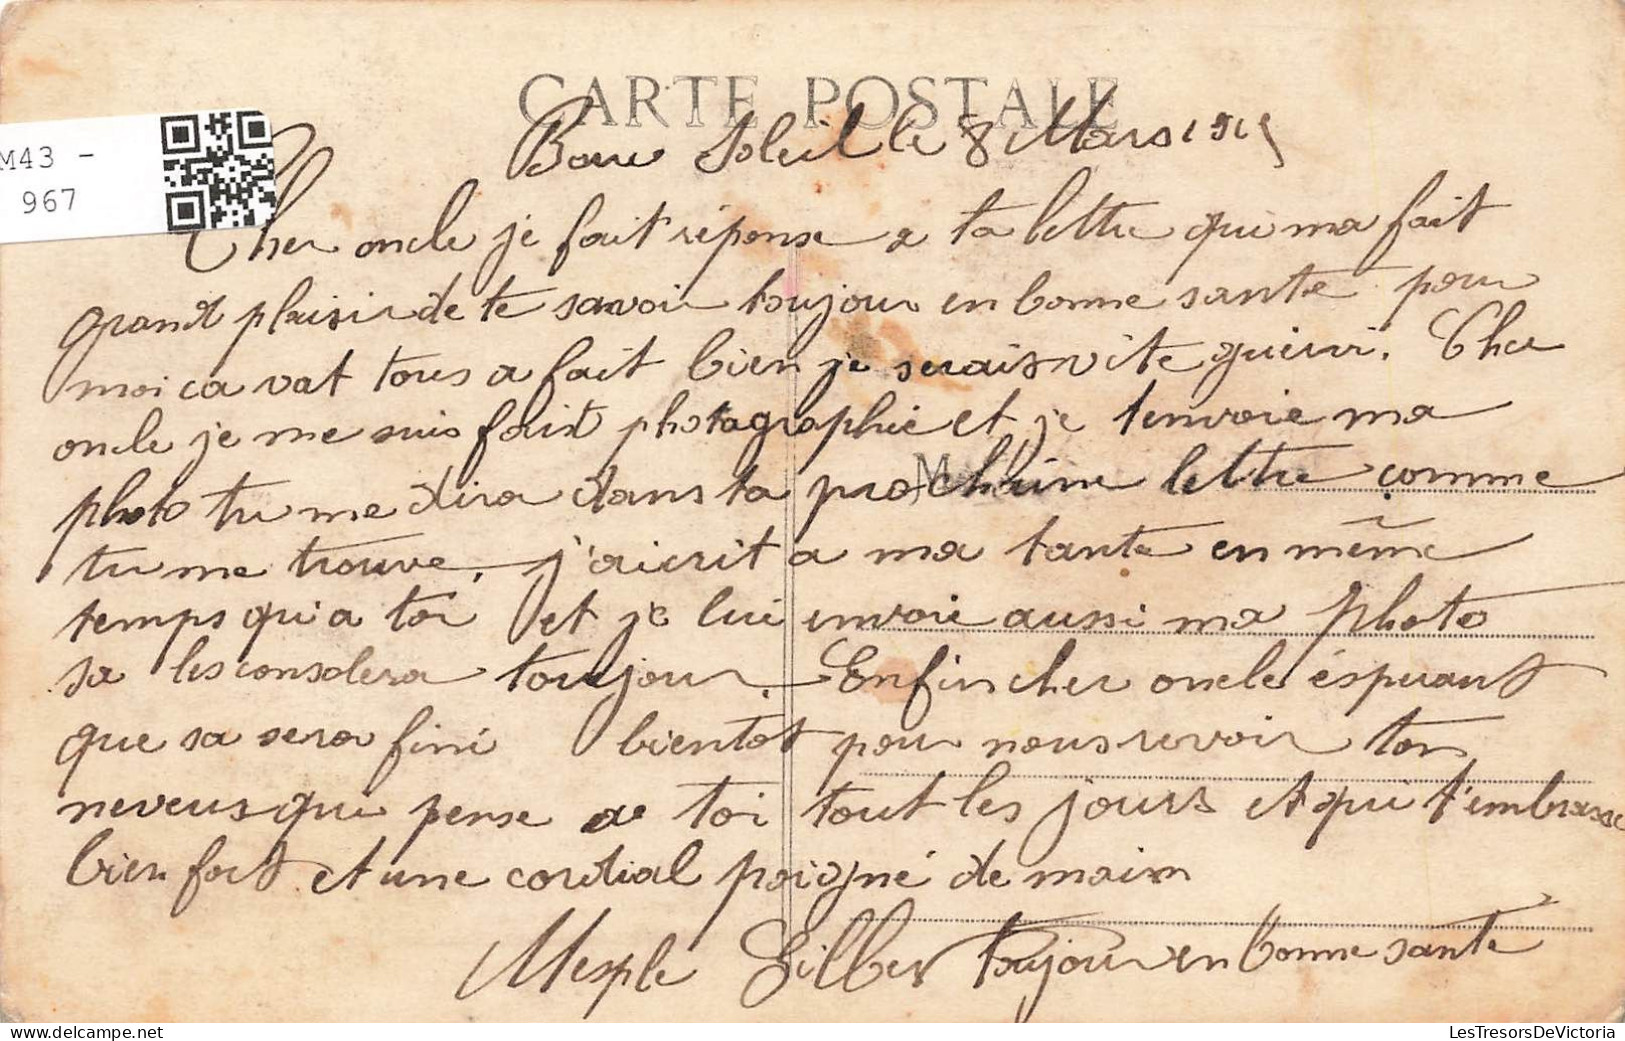 CARTE POSTALE
M43 -
967
Soleil le 8 Mars 191
Cher oncle je fait réponse a ta lettre qui ma fait
grand plaisir de te savoir toujour en bonne sante pour
moi ca vat tous a fait bien je serais vite guerri. Cher
oncle je me suis fait photographie et je tenvoie ma
photo tu me dira dans ta prochaine lettre comme
tu me trouve, j'aicrit a ma tante en même
temps qui a toi et je lui envoie aussi ma photo
sa les consolera toujour. Enfin cher oncle ésperant
que sa sera fini bientot pour nous revoir ton
neveus qui pense a toi tout les jours et qui t'embrasse
bien fort et une cordial poigné de main
Mesple Gilber toujour en bonne sante
LesTresorsDeVictoria
https://www.delcampe.net
LesTresorsDeVictoria